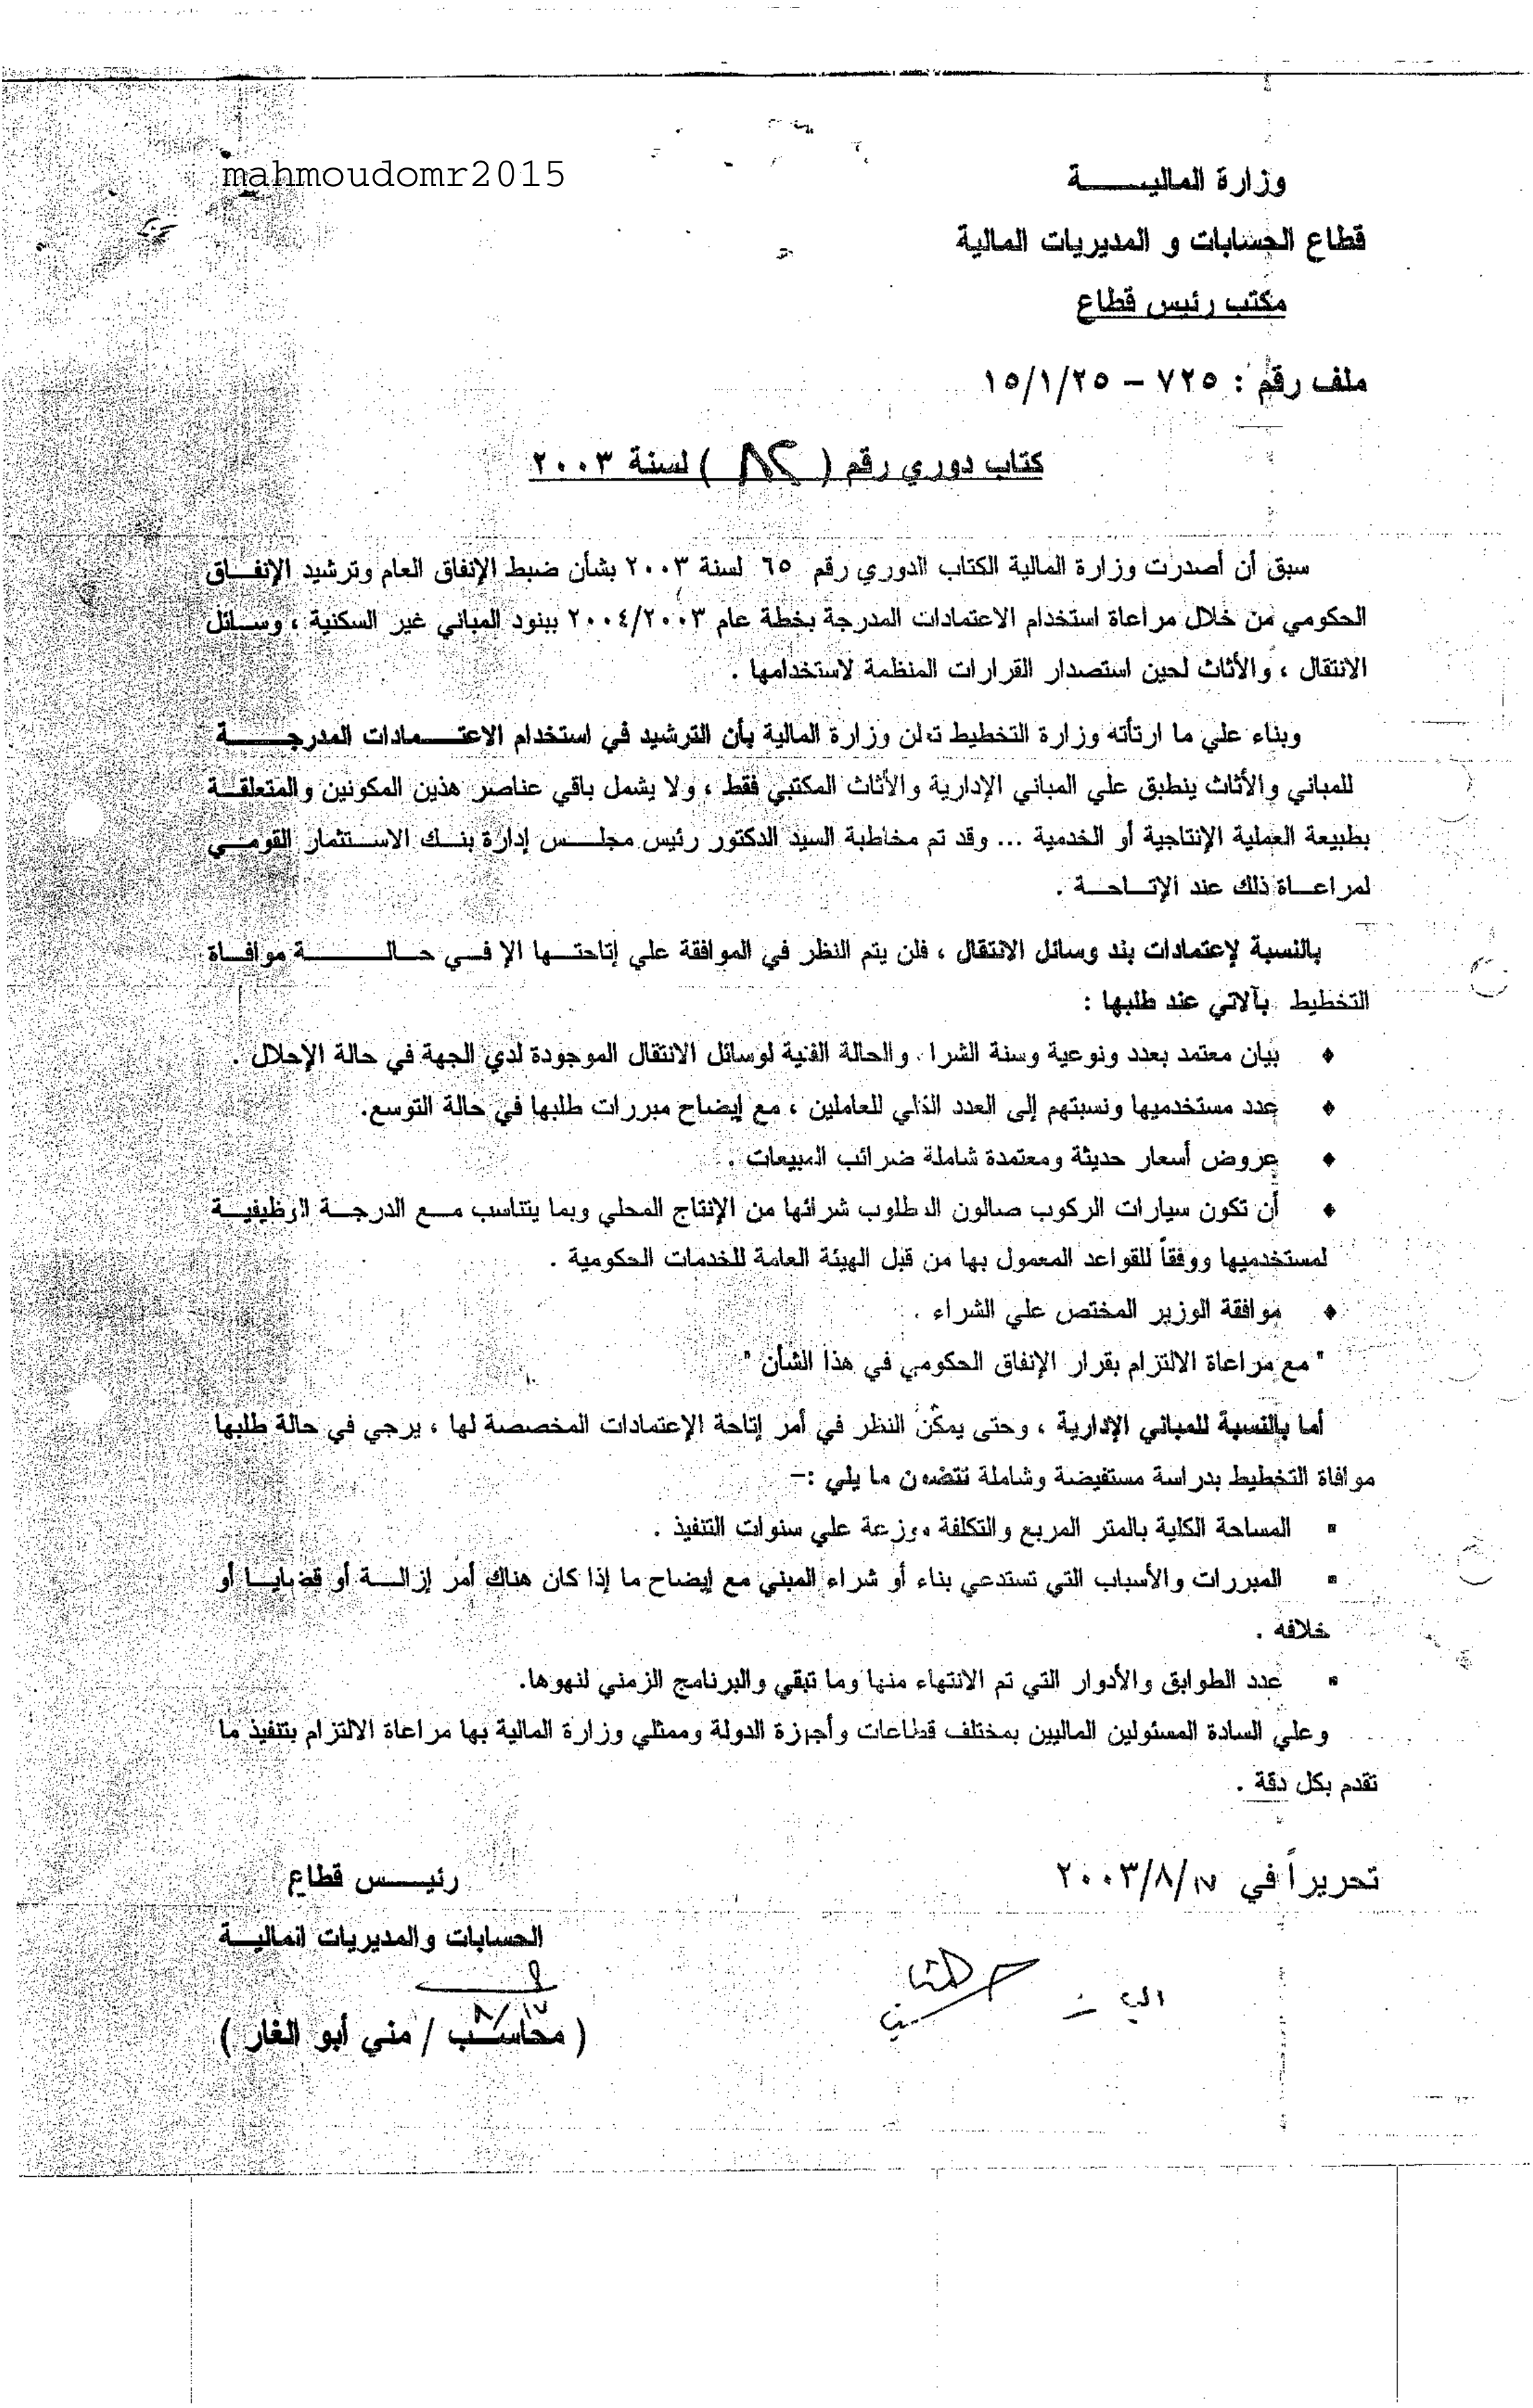 mahmoudomr2015
وزارة الماليـــــة
قطاع الحسابات و المديريات المالية
مكتب رئيس قطاع
ملف رقم : ٧٢٥ – ١٥/١/٢٥
كتاب دوري رقم ( ) لسنة ٢٠٠٣
سبق أن أصدرت وزارة المالية الكتاب الدوري رقم ٦٥ لسنة ٢٠٠٣ بشأن ضبط الإنفاق العام وترشيد الإنفــاق
الحكومي من خلال مراعاة استخدام الاعتمادات المدرجة بخطة عام ٢٠٠٤/٢٠٠٣ ببنود المباني غير السكنية ، وسـائل
الانتقال ، والأثاث لحين استصدار القرارات المنظمة لاستخدامها .
وبناء علي ما ارتأته وزارة التخطيط تعلن وزارة المالية بأن الترشيد في استخدام الاعتـــمادات المدرجــــة
للمباني والأثاث ينطبق علي المباني الإدارية والأثاث المكتبي فقط ، ولا يشمل باقي عناصر هذين المكونين والمتعلقــة
بطبيعة العملية الإنتاجية أو الخدمية ... وقد تم مخاطبة السيد الدكتور رئيس مجلــس إدارة بنــك الاســتثمار القومــي
لمراعــاة ذلك عند الإتــاحــة .
بالنسبة لإعتمادات بند وسائل الانتقال ، فلن يتم النظر في الموافقة علي إتاحتــها الإ فــي حــالـــــة موافــاة
التخطيط بآلاتي عند طلبها :
♦ بيان معتمد بعدد ونوعية وسنة الشراء والحالة الفنية لوسائل الانتقال الموجودة لدي الجهة في حالة الإحلال .
♦ عدد مستخدميها ونسبتهم إلى العدد الكلي للعاملين ، مع إيضاح مبررات طلبها في حالة التوسع.
♦ عروض أسعار حديثة ومعتمدة شاملة ضرائب المبيعات .
♦ أن تكون سيارات الركوب صالون المطلوب شرائها من الإنتاج المحلي وبما يتناسب مــع الدرجــة الوظيفيــة
لمستخدميها ووفقاً للقواعد المعمول بها من قبل الهيئة العامة للخدمات الحكومية .
♦ موافقة الوزير المختص علي الشراء .
" مع مراعاة الالتزام بقرار الإنفاق الحكومي في هذا الشأن "
أما بالنسبة للمباني الإدارية ، وحتى يمكن النظر في أمر إتاحة الإعتمادات المخصصة لها ، يرجي في حالة طلبها
موافاة التخطيط بدراسة مستفيضة وشاملة تتضمن ما يلي :–
▪ المساحة الكلية بالمتر المربع والتكلفة موزعة علي سنوات التنفيذ .
▪ المبررات والأسباب التي تستدعي بناء أو شراء المبني مع إيضاح ما إذا كان هناك أمر إزالــة أو قضايــا أو
خلافه .
▪ عدد الطوابق والأدوار التي تم الانتهاء منها وما تبقي والبرنامج الزمني لنهوها.
وعلي السادة المسئولين الماليين بمختلف قطاعات وأجهزة الدولة وممثلي وزارة المالية بها مراعاة الالتزام بتنفيذ ما
تقدم بكل دقة .
تحريراً في ٢٠٠٣/٨/١٧
رئيــس قطاع
الحسابات والمديريات الماليــة
٨/١٧
( محاســب / مني أبو الغار )